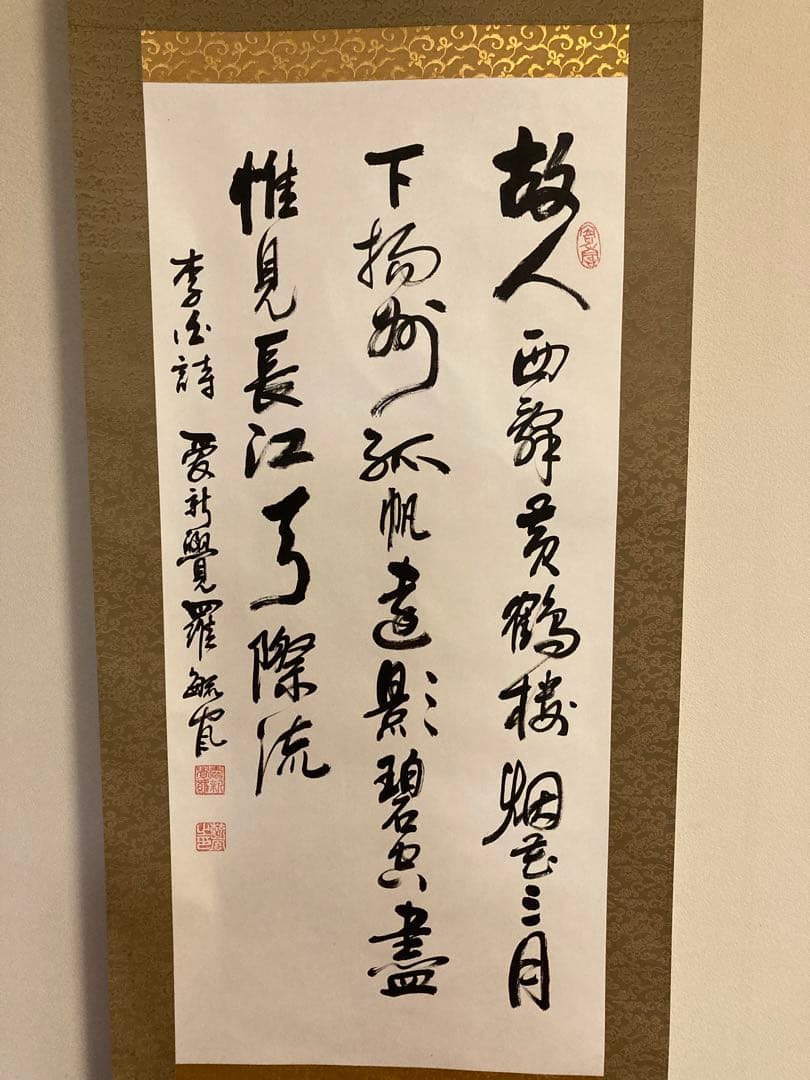 故人西辭黄鶴楼烟花三月
下揚州孤帆遠影碧空盡
惟見長江天際流
李白詩 愛新覺羅毓